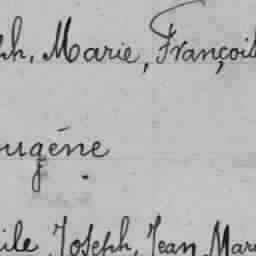 ph, Marie, François
Eugéne.
ile, Joseph, Jean, Mari